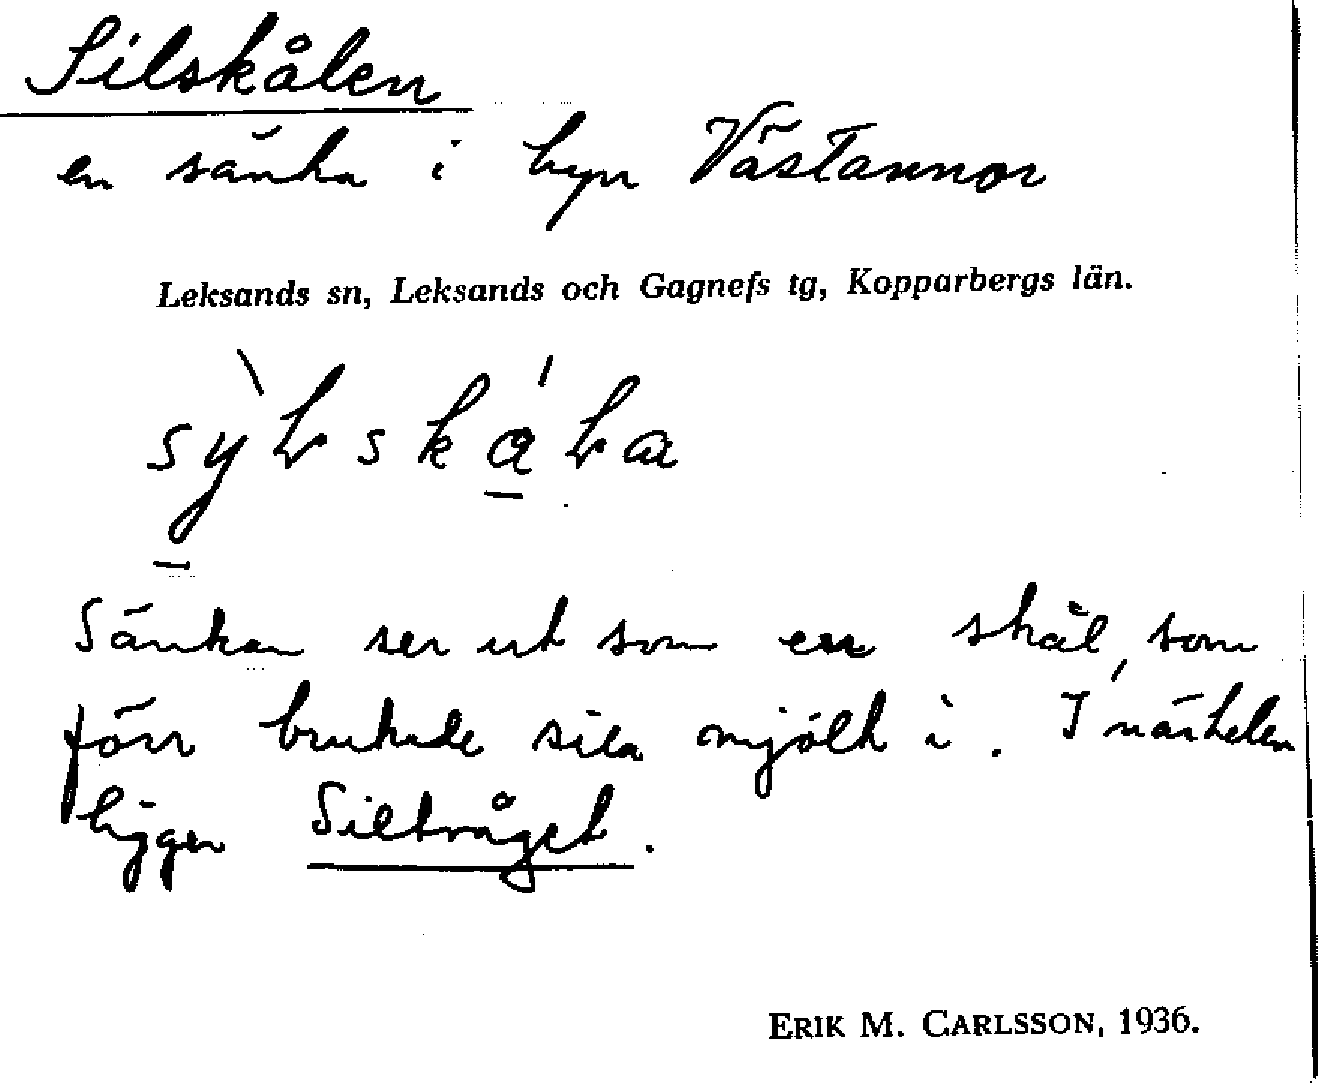 Silskålen
en sänka i byn Västannor
Leksands sn, Leksands och Gagnefs tg, Kopparbergs län.
Sänkan ser ut som en skål, som
förr brukade sila mjölk i. I närheten
ligger Siltråget.
ERIK M. CARLSSON, 1936.